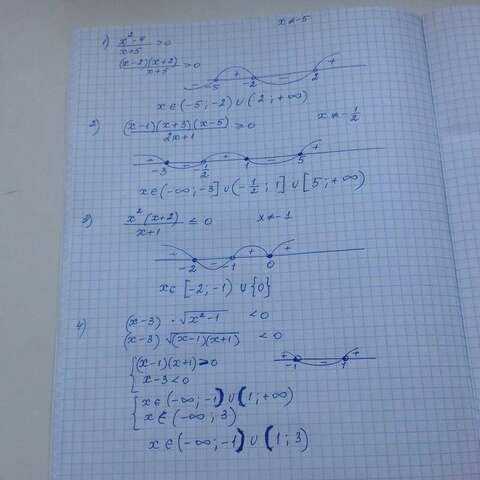 x ≠ -5
1) (x² - 4)/(x+5) > 0
(x-2)(x+2)/(x+5) > 0
- -5 + -2 - 2 +
x ∈ (-5; -2) ∪ (2; +∞)
2) (x-1)(x+3)(x-5)/(2x+1) ≥ 0 x ≠ -1/2
+ -3 - -1/2 + 1 - 5 +
x ∈ (-∞; -3] ∪ (-1/2; 1] ∪ [5; +∞)
3) x²(x+2)/(x+1) ≤ 0 x ≠ -1
+ -2 - -1 + 0 +
x ∈ [-2; -1) ∪ {0}
4) (x-3) · √(x²-1) < 0
(x-3) √((x-1)(x+1)) < 0
{ (x-1)(x+1) > 0 + -1 - 1 +
x-3 < 0
{ x ∈ (-∞; -1) ∪ (1; +∞)
x ∈ (-∞; 3)
x ∈ (-∞; -1) ∪ (1; 3)